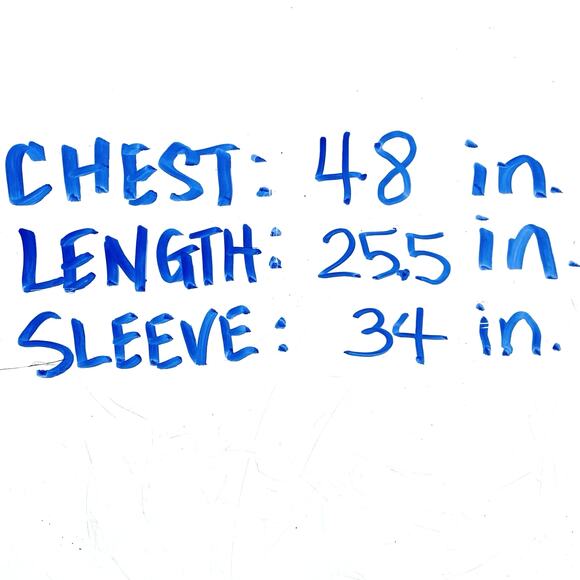 CHEST: 48 in.
LENGTH: 25.5 in.
SLEEVE: 34 in.